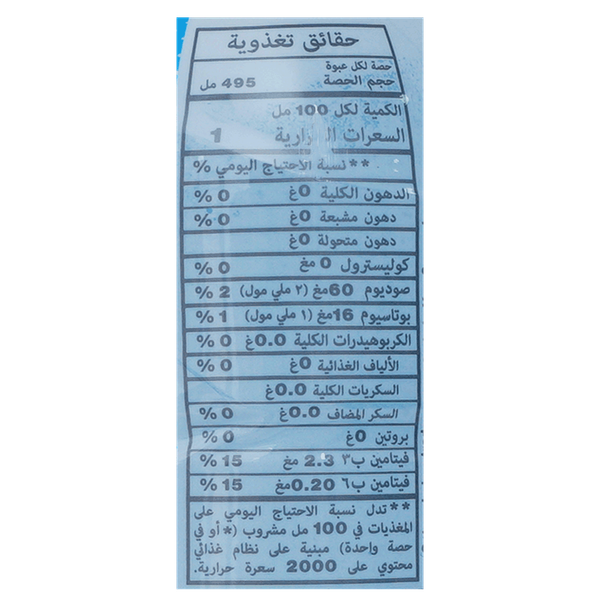 حقائق تغذوية
حصة لكل عبوة
حجم الحصة 495 مل
الكمية لكل 100 مل
السعرات 1
**نسبة الاحتياج اليومي %
الدهون الكلية 0غ 0 %
دهون مشبعة 0غ 0 %
دهون متحولة 0غ
كوليسترول 0 مغ 0 %
صوديوم 60مغ (٢ ملي مول) 2 %
بوتاسيوم 16مغ (١ ملي مول) 1 %
الكربوهيدرات الكلية 0.0غ 0 %
الألياف الغذائية 0غ 0 %
السكريات الكلية 0.0غ
السكر المضاف 0.0غ 0 %
بروتين 0غ 0 %
فيتامين ب٣ 2.3 مغ 15 %
فيتامين ب٦ 0.20مغ 15 %
**تدل نسبة الاحتياج اليومي على
المغذيات في 100 مل مشروب (* أو في
حصة واحدة) مبنية على نظام غذائي
محتوي على 2000 سعرة حرارية.